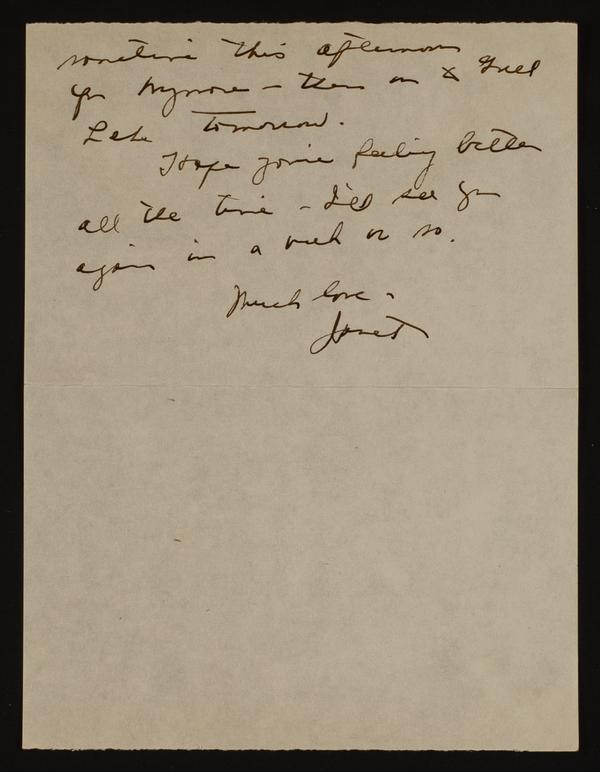 sometime this afternoon
for Mysore – then on to
Lake tomorrow.
Hope you're feeling better
all the time – I'll see you
again in a week or so.
Much love –
Janet